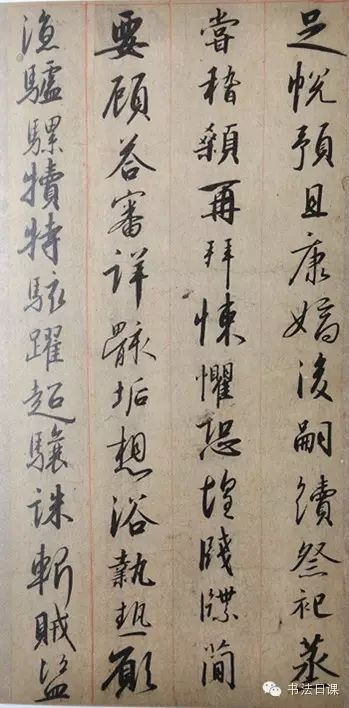 足悦預且康嫡後嗣續祭祀蒸
嘗稽顙再拜悚懼恐惶牋牒簡
要顧答審詳骸垢想浴執熱願
涼驢騾犢特駭躍超驤誅斬賊盜
书法日课